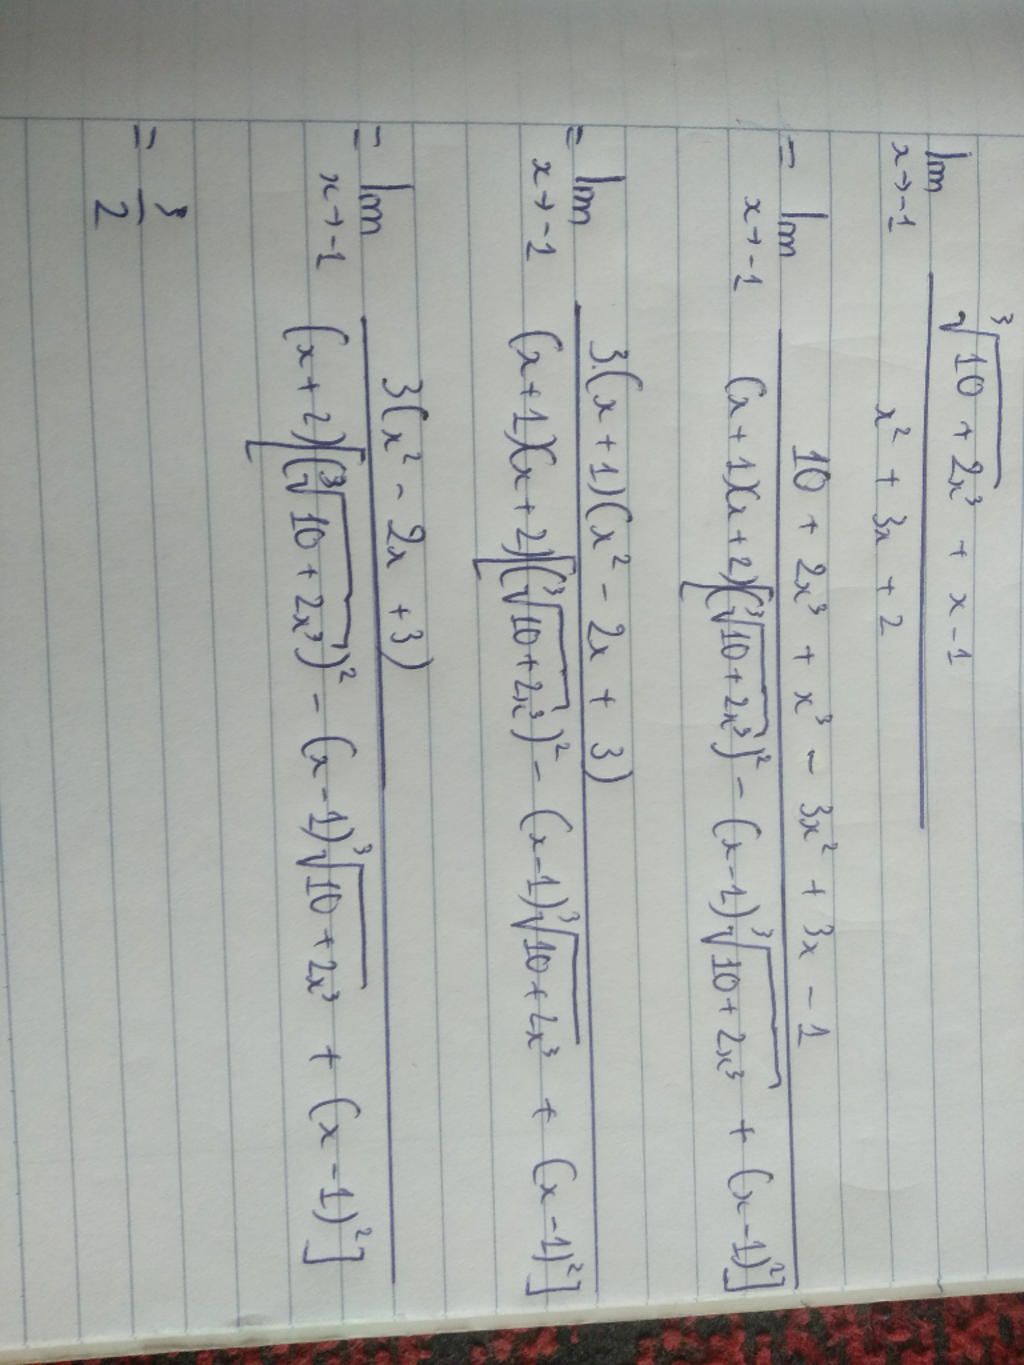 lim ∛(10 + 2x³) + x - 1
x → -1 x² + 3x + 2
= lim 10 + 2x³ + x³ - 3x² + 3x - 1
x → -1 (x + 1)(x + 2)[(∛(10 + 2x³))² - (x - 1)∛(10 + 2x³) + (x - 1)²]
= lim 3.(x + 1)(x² - 2x + 3)
x → -1 (x + 1)(x + 2)[(∛(10 + 2x³))² - (x - 1)∛(10 + 2x³) + (x - 1)²]
= lim 3(x² - 2x + 3)
x → -1 (x + 2)[(∛(10 + 2x³))² - (x - 1)∛(10 + 2x³) + (x - 1)²]
= 3
2